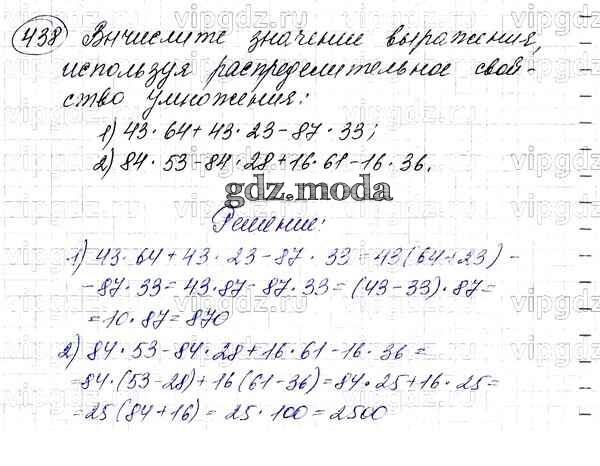 438 Вычислите значение выражения,
используя распределительное свой-
ство умножения:
1) 43·64+43·23-87·33;
2) 84·53-84·28+16·61-16·36.
gdz.moda
Решение:
1) 43·64+43·23-87·33=43(64+23)-
-87·33=43·87-87·33=(43-33)·87=
=10·87=870
2) 84·53-84·28+16·61-16·36=
=84·(53-28)+16(61-36)=84·25+16·25=
=25(84+16)=25·100=2500